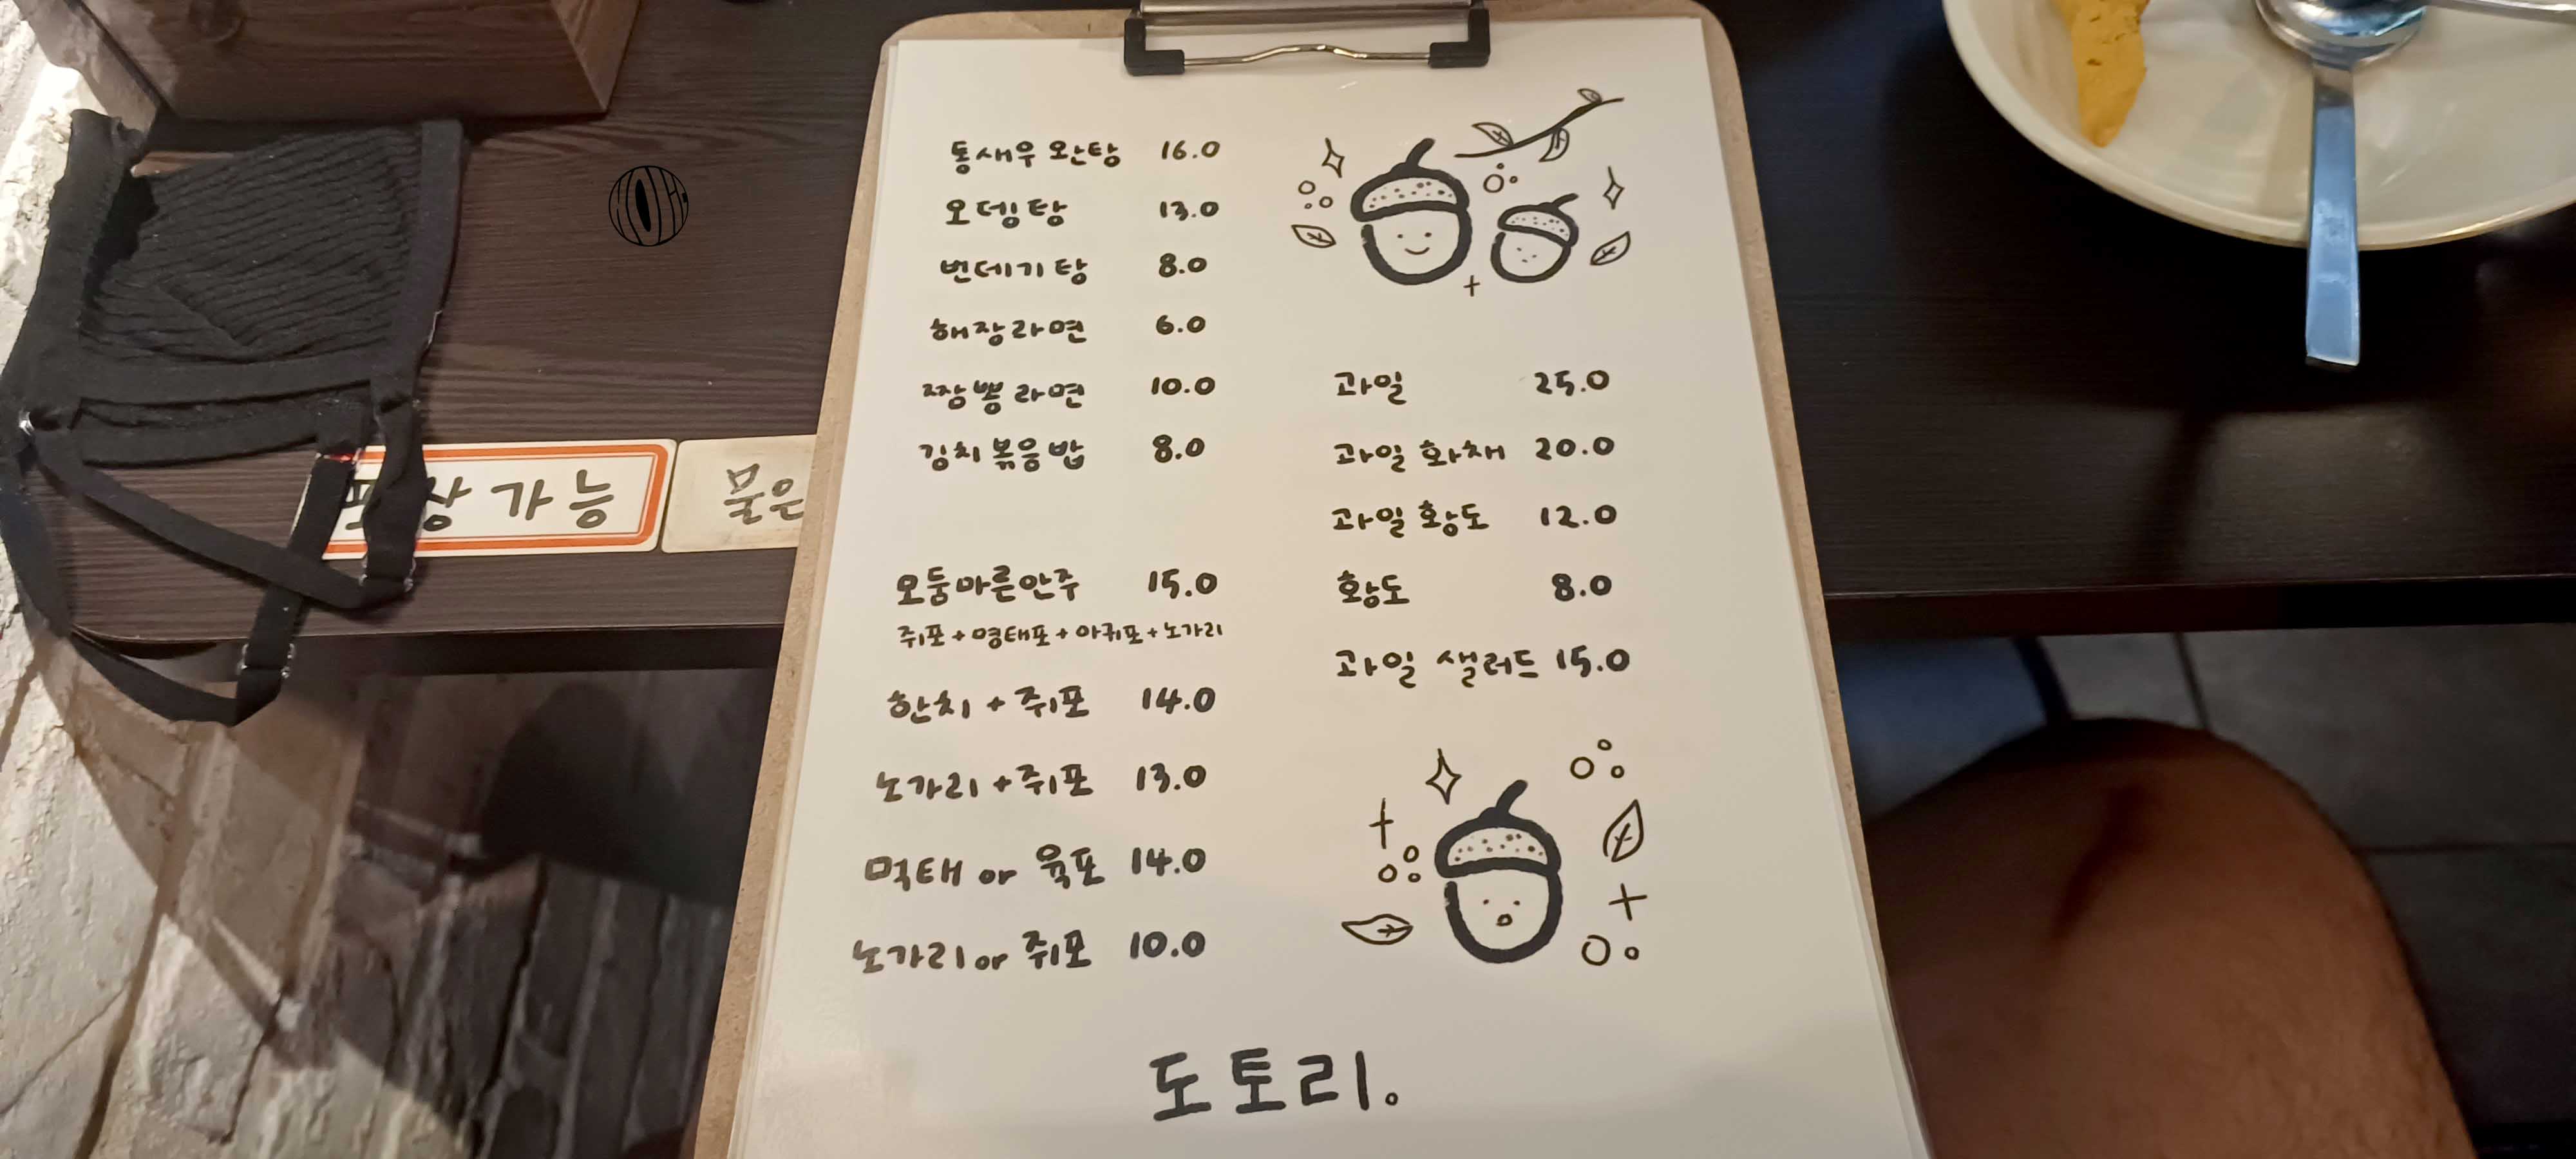 통새우 완탕 16.0
오뎅탕 13.0
번데기탕 8.0
해장라면 6.0
짬뽕라면 10.0
김치볶음밥 8.0
모둠마른안주 15.0
쥐포+명태포+아귀포+노가리
한치+쥐포 14.0
노가리+쥐포 13.0
먹태 or 육포 14.0
노가리 or 쥐포 10.0
과일 25.0
과일 화채 20.0
과일 황도 12.0
황도 8.0
과일 샐러드 15.0
도토리.
포장 가능
물은